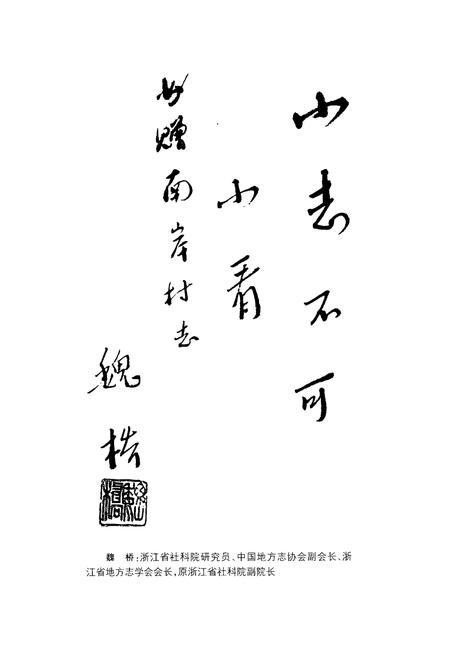 小志不可
小看
书赠南岸村志
魏桥
魏　桥:浙江省社科院研究员、中国地方志协会副会长、浙
江省地方志学会会长,原浙江省社科院副院长